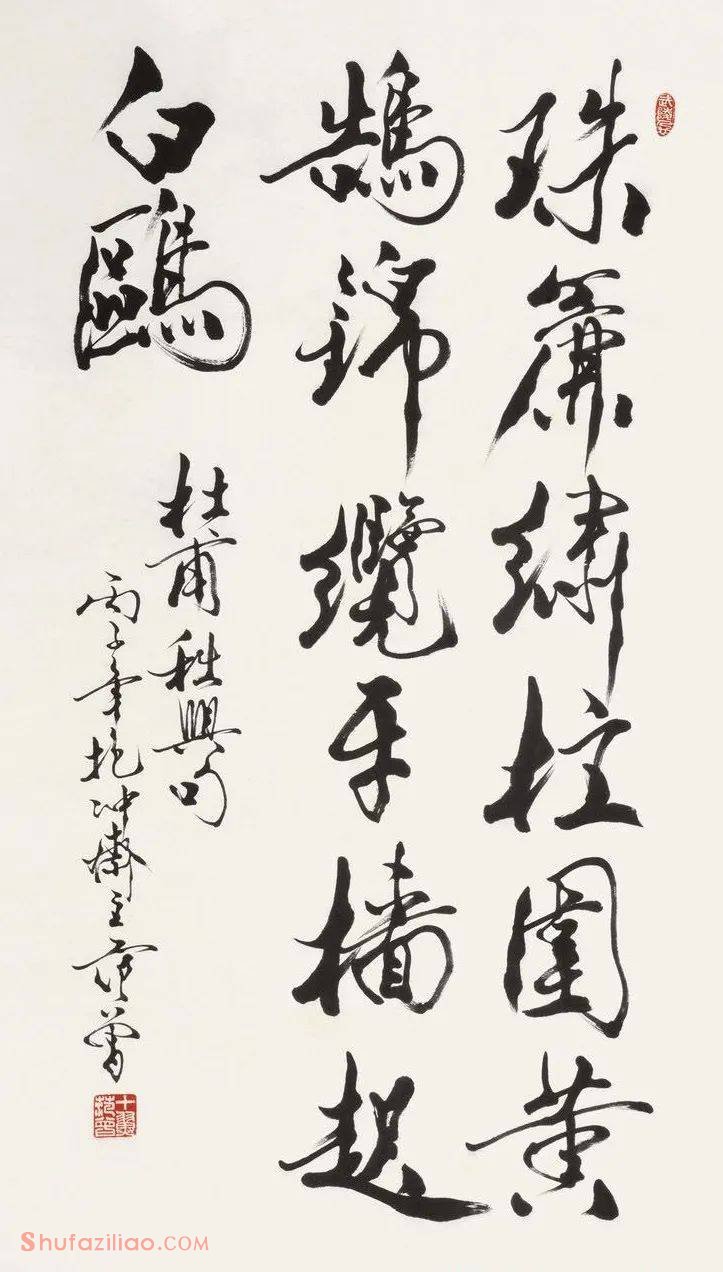 珠簾繡柱圍黃
鵠錦纜牙檣起
白鷗
杜甫秋興句
丙子年抱冲齋主范曾
十翼范曾
Shufaziliao.COM